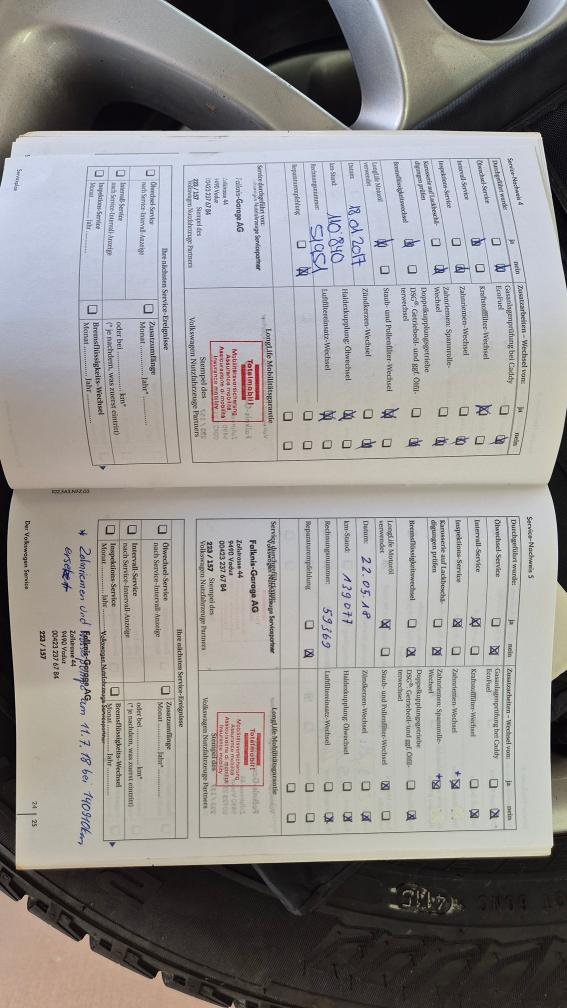 Service-Nachweis 4
Durchgeführt wurde: ja nein
Ölwechsel-Service
Intervall-Service
Inspektions-Service
Karosserie auf Lackbeschä-
digungen prüfen
Bremsflüssigkeitswechsel
LongLife Motoröl
verwendet
Datum: 18.01.2017
km-Stand: 110'840
Rechnungsnummer: 51951
Reparaturempfehlung
Zusatzarbeiten - Wechsel von: ja nein
Gasanlagenprüfung bei Caddy
EcoFuel
Kraftstofffilter-Wechsel
Zahnriemen-Wechsel
Zahnriemen: Spannrolle-
Wechsel
Doppelkupplungsgetriebe
DSG®: Getriebeöl- und ggf. Ölfil-
terwechsel
Staub- und Pollenfilter-Wechsel
Zündkerzen-Wechsel
Haldexkupplung: Ölwechsel
Luftfiltereinsatz-Wechsel
Service durchgeführt von:
Falknis-Garage AG
Zollstrasse 44
9490 Vaduz
00423 237 67 84
223 / 157 Stempel des
Volkswagen Nutzfahrzeuge Partners
LongLife Mobilitätsgarantie
Totalmobil!
Mobilitätsversicherung
Assurance mobilité
Assicurazione di mobilità
Insurance mobility
Stempel des
Volkswagen Nutzfahrzeuge Partners
Ihre nächsten Service-Ereignisse
Ölwechsel-Service
nach Service-Intervall-Anzeige
Intervall-Service
nach Service-Intervall-Anzeige
Inspektions-Service
Monat Jahr
Zusatzumfänge
Monat Jahr*
oder bei km*
(* je nachdem, was zuerst eintritt)
Bremsflüssigkeits-Wechsel
Monat Jahr
Serviceplan
Service-Nachweis 5
Durchgeführt wurde: ja nein
Ölwechsel-Service
Intervall-Service
Inspektions-Service
Karosserie auf Lackbeschä-
digungen prüfen
Bremsflüssigkeitswechsel
LongLife Motoröl
verwendet
Datum: 22.05.18
km-Stand: 139077
Rechnungsnummer: 59369
Reparaturempfehlung
Zusatzarbeiten - Wechsel von: ja nein
Gasanlagenprüfung bei Caddy
EcoFuel
Kraftstofffilter-Wechsel
Zahnriemen-Wechsel
Zahnriemen: Spannrolle-
Wechsel
Doppelkupplungsgetriebe
DSG®: Getriebeöl- und ggf. Ölfil-
terwechsel
Staub- und Pollenfilter-Wechsel
Zündkerzen-Wechsel
Haldexkupplung: Ölwechsel
Luftfiltereinsatz-Wechsel
Service durchgeführt von:
Falknis-Garage AG
Zollstrasse 44
9490 Vaduz
00423 237 67 84
223 / 157 Stempel des
Volkswagen Nutzfahrzeuge Partners
LongLife Mobilitätsgarantie
Totalmobil!
Mobilitätsversicherung
Assurance mobilité
Assicurazione di mobilità
Insurance mobility
Stempel des
Volkswagen Nutzfahrzeuge Partners
Ihre nächsten Service-Ereignisse
Ölwechsel-Service
nach Service-Intervall-Anzeige
Intervall-Service
nach Service-Intervall-Anzeige
Inspektions-Service
Monat Jahr
Zusatzumfänge
Monat Jahr*
oder bei km*
(* je nachdem, was zuerst eintritt)
Bremsflüssigkeits-Wechsel
Monat Jahr
* Zahnriemen und Wasserpumpe am 11.7.18 bei 140910km
ersetzt
Falknis-Garage AG
Zollstrasse 44
9490 Vaduz
00423 237 67 84
223 / 157
102.5A3.NFZ.03
Der Volkswagen Service
24 | 25